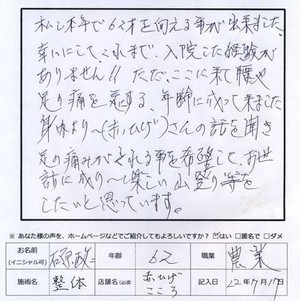 私し本年で62才を向える事が出来ました。
幸いにして、これまで、入院した経験が
ありません!! ただ、ここに来て腰や
足の痛を意する、年齢に成って来ました
身内より〜(赤ひげ)さんの話を聞き
足の痛みがとれる事を希望して、お世
話に成り〜と楽しい山登り等を
したいと思っています。
※ あなた様の声を、ホームページなどでご紹介してもよろしいですか? はい □匿名で □ダメ
お名前 (イニシャル可) 年齢 62 職業 農業
施術名 整体 店舗名(必須) 赤ひげこころ 記入日 22年7月17日